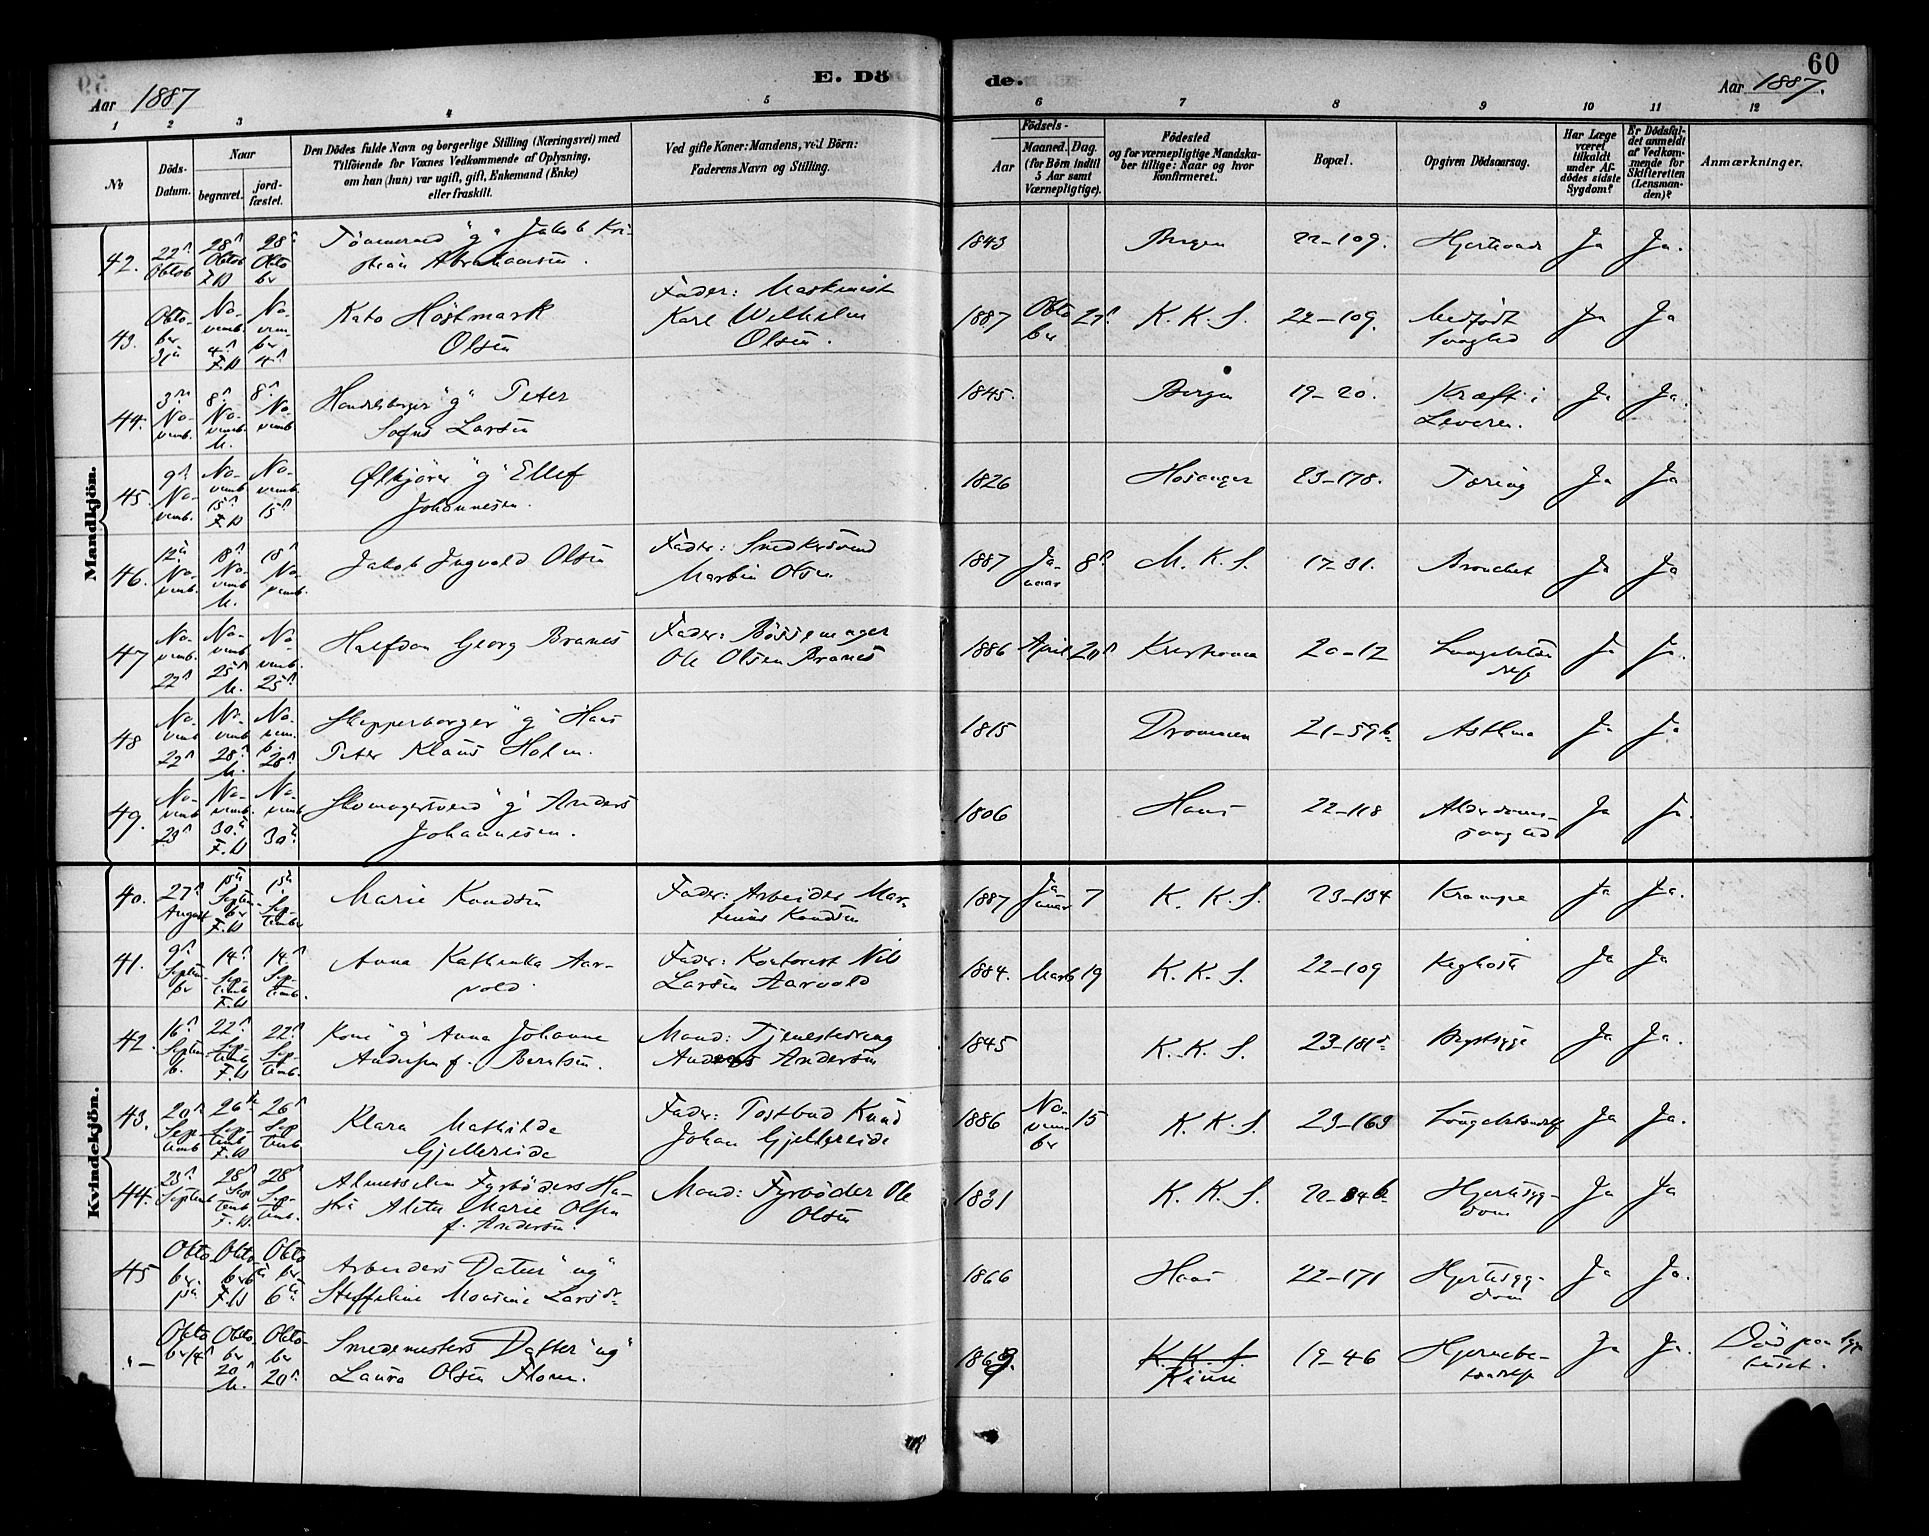 60
E. Dö de.
Aar 1887
Aar 1887.
1 2 3 4 5 6 7 8 9 10 11 12
No
Döds-
Datum.
Naar
begravet.
jord-
fæstet.
Den Dödes fulde Navn og borgerlige Stilling (Næringsvei) med
Tilföiende for Voxnes Vedkommende af Oplysning,
om han (hun) var ugift, gift, Enkemand (Enke)
eller fraskilt.
Ved gifte Koner: Mandens, ved Börn:
Faderens Navn og Stilling.
Födsels-
Aar
Maaned. Dag.
(for Börn indtil
5 Aar samt
Værnepligtige).
Födested
og for værnepligtige Mandska-
ber tillige: Naar og hvor
konfirmeret.
Bopæl.
Opgiven Dödsaarsag.
Har Læge
været
tilkaldt
under Af-
dödes sidste
Sygdom?
Er Dödsfal-
det anmeldt
af Vedkom-
mende for
Skifteretten
(Lensman-
den)?
Anmærkninger.
Mandkjön.
42. 22 Oktob 28 Oktob F.H 28 Okto ber
"g" Jakob Kri-
stian Abrahamsen.
1843 Bergen 22-109. Ja Ja.
43. Okto- ber No- vemb 4 F.H No- vem- ber 4
Kato Höstmark
Olsen
Fader: Maskinist
Karl Wilhelm
Olsen.
1887 Okto ber K. K. S. 22-109. Medfödt
svaghed Ja Ja
44. 3 No- vemb. 8 No- vemb. M. 8 No vemb
Handelsborger "g" Peter
Sofus Larsen
1845. Bergen 19-20. Kræft i
Leveren. Ja Ja.
45. 9 No- vemb. No- vemb 15 F.H No- vemb. 15
"g" Ellef
Johannesen.
1826 Hosanger 23-178. Tæring Ja Ja
46. 12 No- vemb. 18 No- vemb M. 18 No- vemb.
Jakob Ingvald Olsen
Fader: Snedkersvend
Martin Olsen
1887 Ja- nuar 8 M. K. S. 17-31. Bronchit Ja Ja
47 No- vemb. 22 No- vemb 25 M. No- vemb. 25
Halfdan Georg Branæs
Fader: Bössemager
Ole Olsen Branæs
1886 April 20 Kristiania 20-12 Ja Ja.
48 No- vemb 22 No- vemb 28 M. No- vem b. 28
Skipperborger "g" Hans
Peter Klaus Holm.
1815 Drammen 21-59b Asthma Ja Ja
49. No- vemb 23 No- vemb. 30 F.H No- vemb 30
Skomagersvend "g" Anders
Johannesen.
1806 Haus 22-118 Alderdoms-
svaghed Ja Ja.
Kvindekjön.
40. 27 August 15 Septem- ber F.H 15 Sep- tember
Marie Knudsen
Fader: Arbeider Mar-
tinus Knudsen
1887 Ja- nuar 7 K. K. S. 23-134 Krampe Ja Ja.
41. 9 Septem- br 14 Sep- temb F.H 14 Sep- temb.
Anna Kathinka Aar-
vold.
Fader: Kontorist Nils
Larsen Aarvold
1884. Marts 19 K. K. S. 22-109 Kighoste Ja Ja
42. 16 Septem- b. 22 Sep- temb F.H 22 Sep- temb.
Kone "g" Anna Johanne
Andersen f. Berntsen.
Mand: Tjenestedreng
Anders Andersen
1845 K. K. S. 23-181 Brystsyge Ja Ja.
43. 20 Sep- temb 26 Sep- temb F.H 26 Sep- temb
Klara Mathilde
Gjellereide
Fader: Postbud Knud
Johan Gjellereide
1886 No- vem- ber 15 K. K. S. 23-163 Ja Ja.
44. 23 Septemb 28 Sep- temb F.H. 28 Sep- temb.
Almisselem Fyrböders Hu-
stru Aleta Marie Olsen
f. Andersen.
Mand: Fyrböder Ole
Olsen
1831 K. K. S. Hjertesyg-
dom Ja Ja
45 Okto ber Okto ber 6 F.H Okto ber 6
Arbeiders Datter "ug"
Steffeline Monsine Larsdr
1866 Haus 22-171 Hjertesyg-
dom Ja Ja.
"- Okto ber 14 Okto- ber 20 M. Okto- ber 20
Smedemesters Datter "ug"
Laura Olsen Flone.
K. K. S.
Kinn 19-46 Hjernebe-
tændelse Ja Ja. Död paa Syge-
huset.